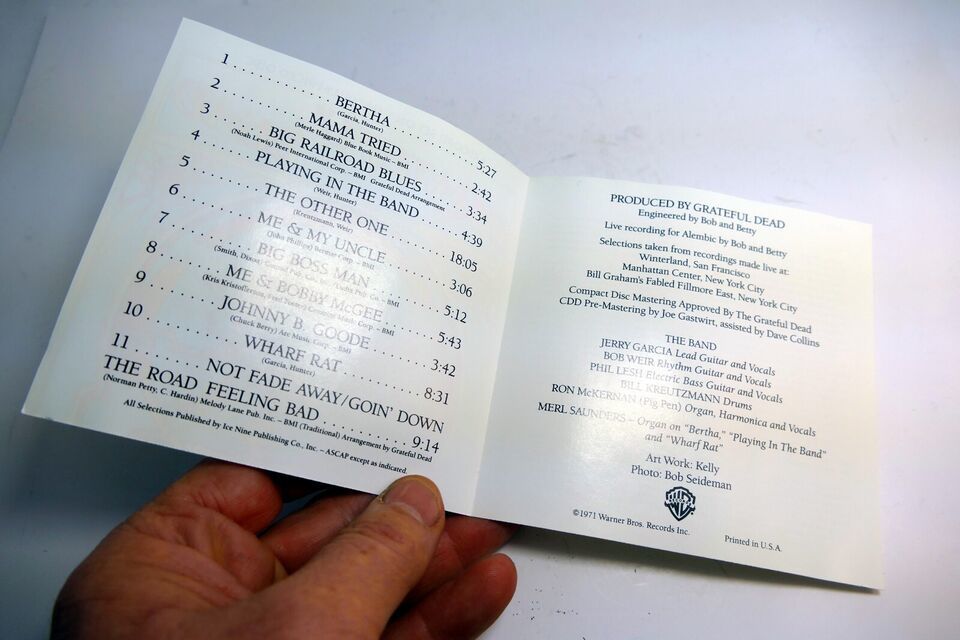 1 . . . . . . . . . . . . . BERTHA . . . . . . . . . . . . . 5:27
(Garcia, Hunter)
2 . . . . . . . . . . MAMA TRIED . . . . . . . . . . 2:42
(Merle Haggard) Blue Book Music – BMI
3 . . . . . . . BIG RAILROAD BLUES . . . . . . . 3:34
(Noah Lewis) Peer International Corp. – BMI Grateful Dead Arrangement
4 . . . . . . PLAYING IN THE BAND . . . . . . 4:39
(Weir, Hunter)
5 . . . . . . . . . THE OTHER ONE . . . . . . . . . 18:05
(Kreutzmann, Weir)
6 . . . . . . . . . ME & MY UNCLE . . . . . . . . . 3:06
(John Phillips) Corp. – BMI
7 . . . . . . . . . BIG BOSS MAN . . . . . . . . . 5:12
(Smith, Dixon) Pub. Inc. Pub. Co. – BMI
8 . . . . . . . ME & BOBBY McGEE . . . . . . . 5:43
(Kris Kristofferson, Fred Foster) Music Corp. – BMI
9 . . . . . . . . JOHNNY B. GOODE . . . . . . . . 3:42
(Chuck Berry) Arc Music, Corp. – BMI
10 . . . . . . . . . . WHARF RAT . . . . . . . . . . 8:31
(Garcia, Hunter)
11 . . . . . . . NOT FADE AWAY/GOIN' DOWN
THE ROAD FEELING BAD . . . . . . . . . 9:14
(Norman Petty, C. Hardin) Melody Lane Pub. Inc. – BMI (Traditional) Arrangement by Grateful Dead
All Selections Published by Ice Nine Publishing Co., Inc. – ASCAP except as indicated.
PRODUCED BY GRATEFUL DEAD
Engineered by Bob and Betty
Live recording for Alembic by Bob and Betty
Selections taken from recordings made live at:
Winterland, San Francisco
Manhattan Center, New York City
Bill Graham's Fabled Fillmore East, New York City
Compact Disc Mastering Approved By The Grateful Dead
CDD Pre-Mastering by Joe Gastwirt, assisted by Dave Collins
THE BAND
JERRY GARCIA Lead Guitar and Vocals
BOB WEIR Rhythm Guitar and Vocals
PHIL LESH Electric Bass Guitar and Vocals
BILL KREUTZMANN Drums
RON McKERNAN (Pig Pen) Organ, Harmonica and Vocals
MERL SAUNDERS – Organ on "Bertha," "Playing In The Band"
and "Wharf Rat"
Art Work: Kelly
Photo: Bob Seideman
WB
©1971 Warner Bros. Records Inc.
Printed in U.S.A.